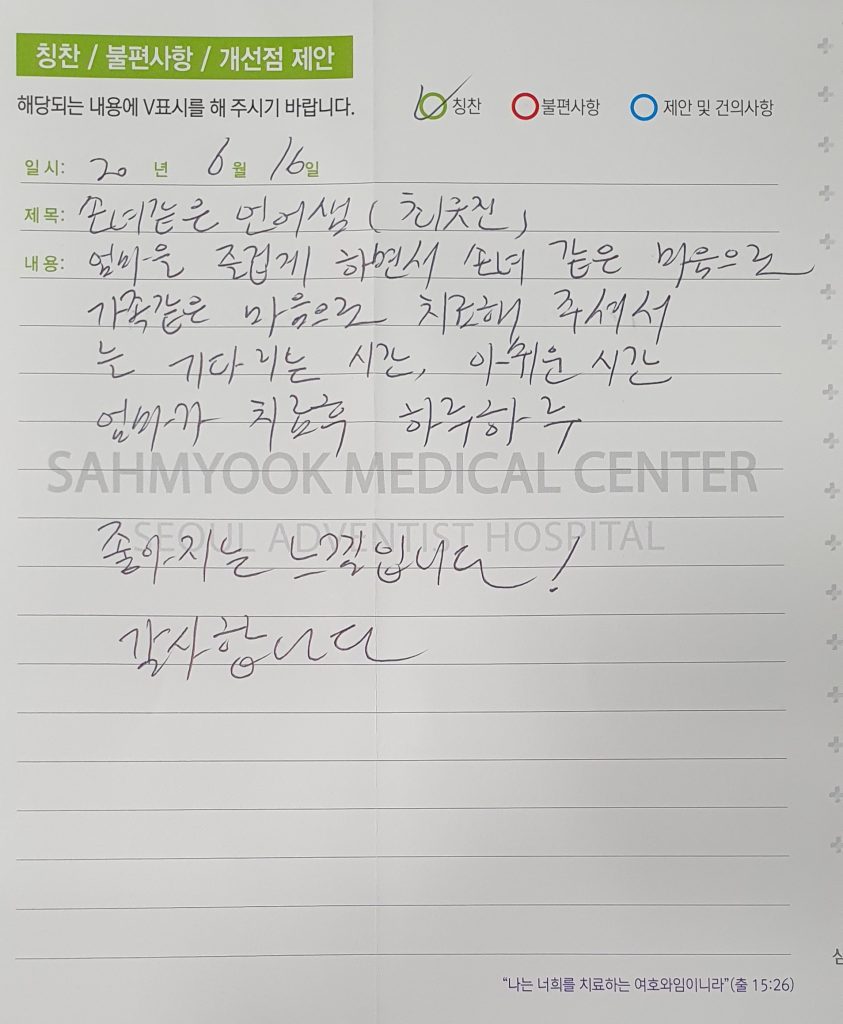 칭찬 / 불편사항 / 개선점 제안
해당되는 내용에 V표시를 해 주시기 바랍니다. 칭찬 불편사항 제안 및 건의사항
일시: 20 년 6 월 16 일
제목: 손녀같은 언어샘 (최윤진)
내용: 엄마을 즐겁게 하면서 손녀 같은 마음으로
가족같은 마음으로 치료해 주셔서
늘 기다리는 시간, 아쉬운 시간
엄마가 치료후 하루하루
SAHMYOOK MEDICAL CENTER
SEOUL ADVENTIST HOSPITAL
좋아지는 느낌입니다!
감사합니다
“나는 너희를 치료하는 여호와임이니라”(출 15:26)